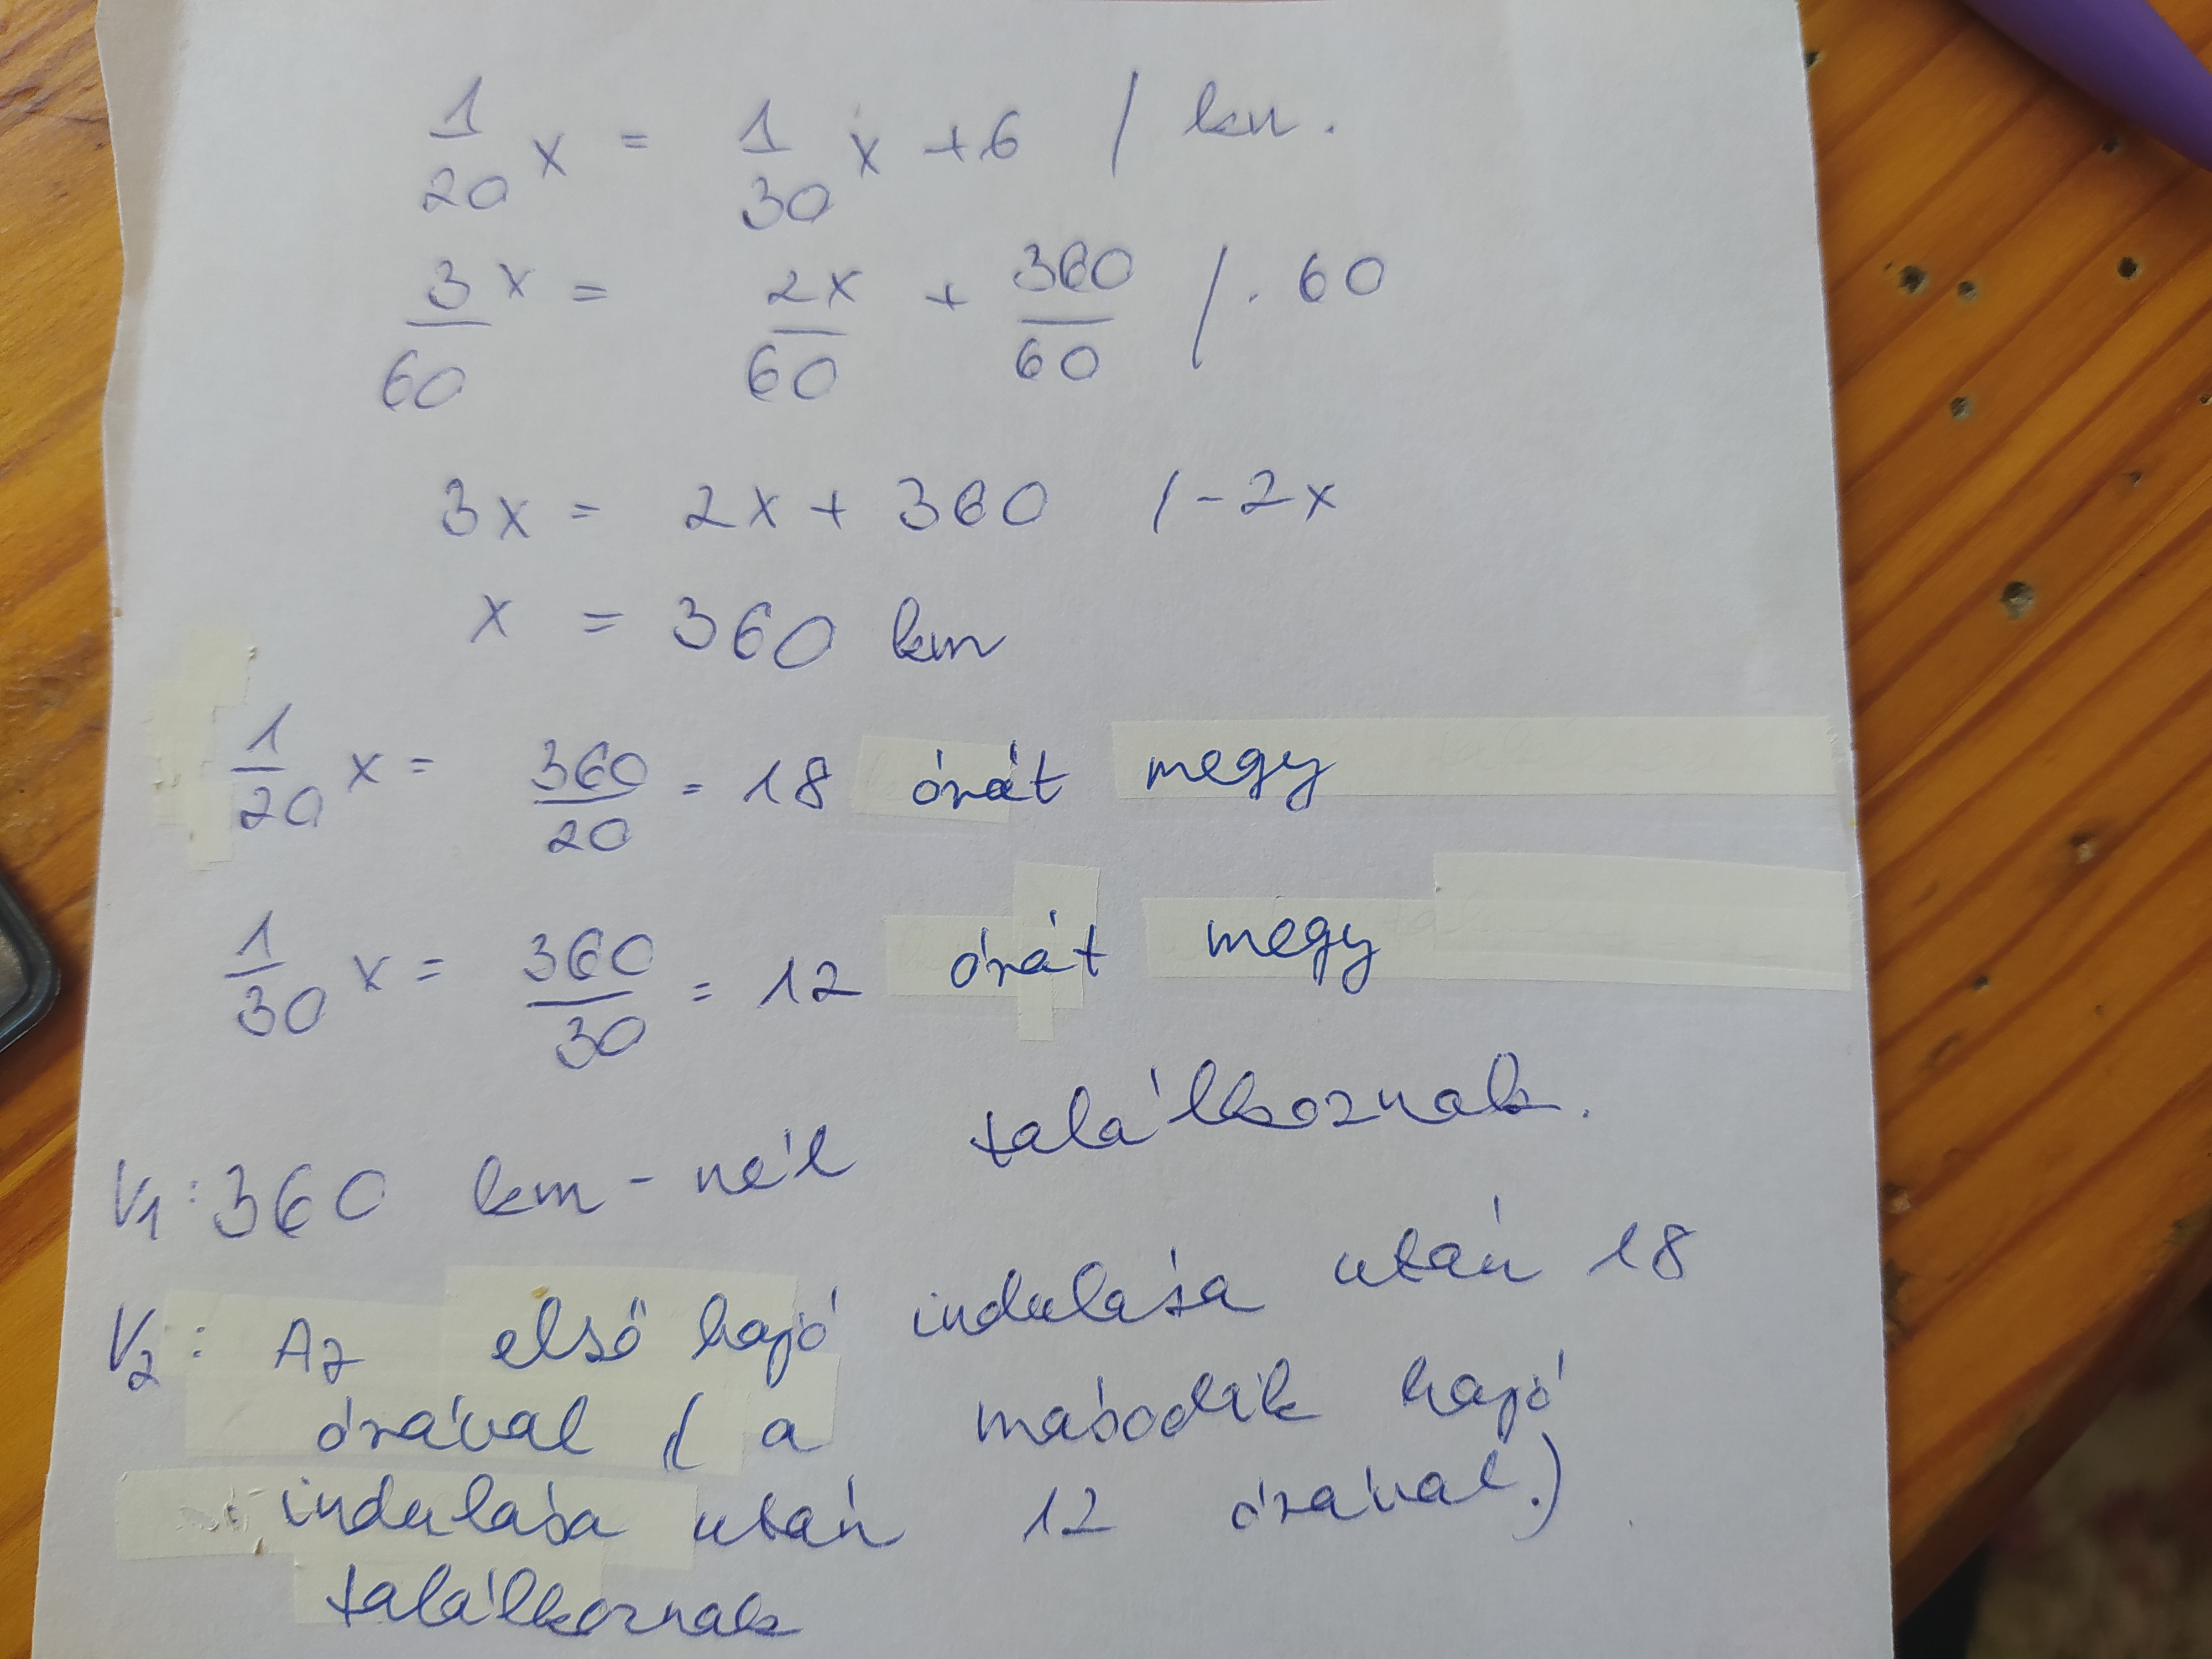 1/20 x = 1/30 x + 6 / kn.
3x/60 = 2x/60 + 360/60 / · 60
3x = 2x + 360 / - 2x
x = 360 km
1/20 x = 360/20 = 18 órát megy
1/30 x = 360/30 = 12 órát megy
V1: 360 km - nél találkoznak.
V2: Az első hajó indulása után 18
órával ( a második hajó
indulása után 12 órával.)
találkoznak